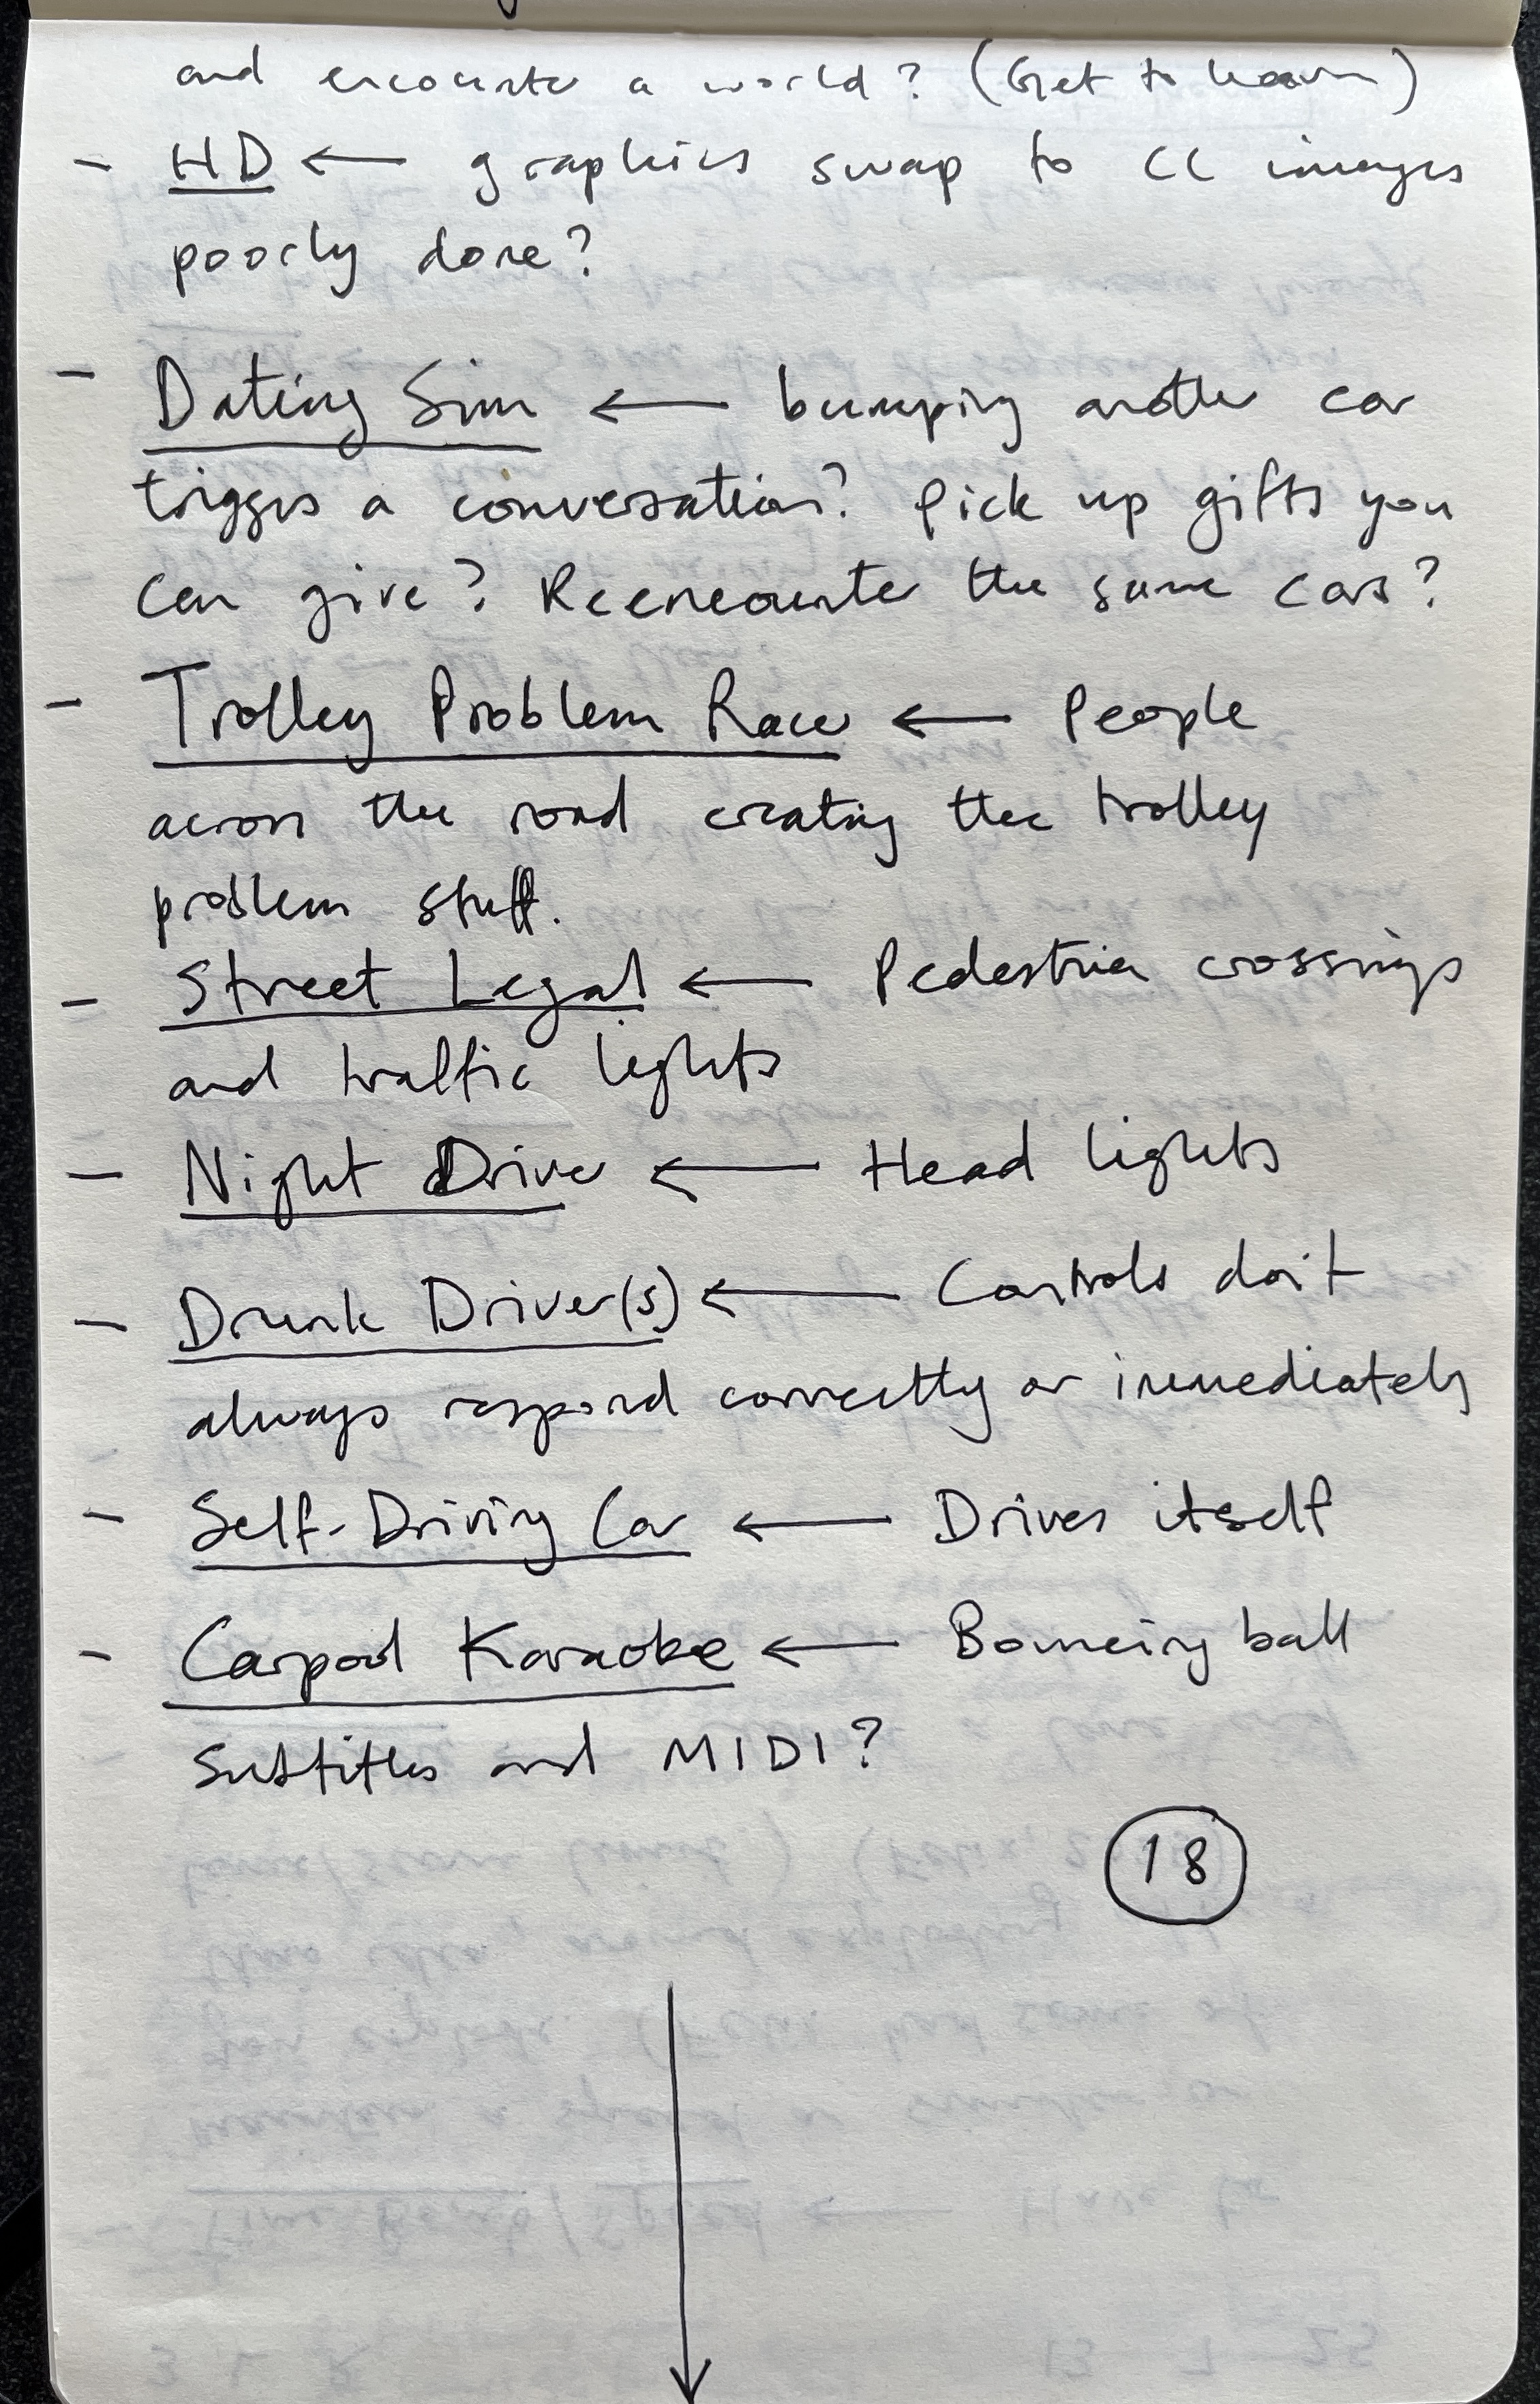 and encounter a world? (Get to heaven)
- HD ← graphics swap to CC images
poorly done?
- Dating Sim ← bumping another car
triggers a conversation? Pick up gifts you
can give? Reencounter the same cars?
- Trolley Problem Racer ← People
across the road creating the trolley
problem stuff.
- Street Legal ← Pedestrian crossings
and traffic lights
- Night Drive ← Head lights
- Drunk Driver(s) ← Controls don't
always respond correctly or immediately
- Self-Driving Car ← Drives itself
- Carpool Karaoke ← Bouncing ball
subtitles and MIDI?
18